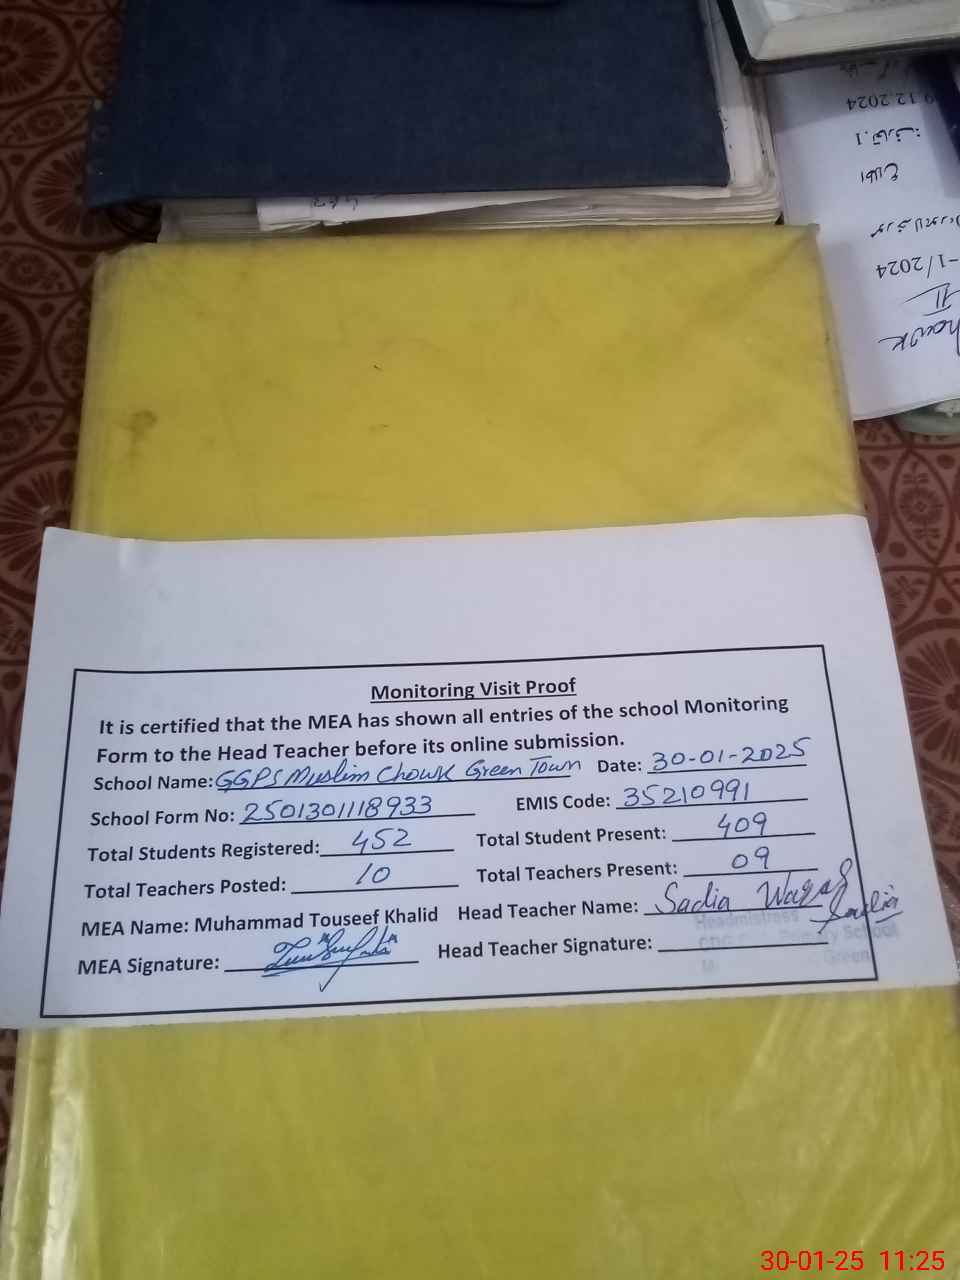 9.12.2024
1. تعارف:
اطلاع
-1/2024
II
Monitoring Visit Proof
It is certified that the MEA has shown all entries of the school Monitoring
Form to the Head Teacher before its online submission.
School Name: GGPS Muslim Chowk Green Town Date: 30-01-2025
School Form No: 2501301118933 EMIS Code: 35210991
Total Students Registered: 452 Total Student Present: 409
Total Teachers Posted: 10 Total Teachers Present: 09
MEA Name: Muhammad Touseef Khalid Head Teacher Name: Sadia Waqas
MEA Signature: Head Teacher Signature: Sadia
Headmistress
Primary School
Green
30-01-25 11:25